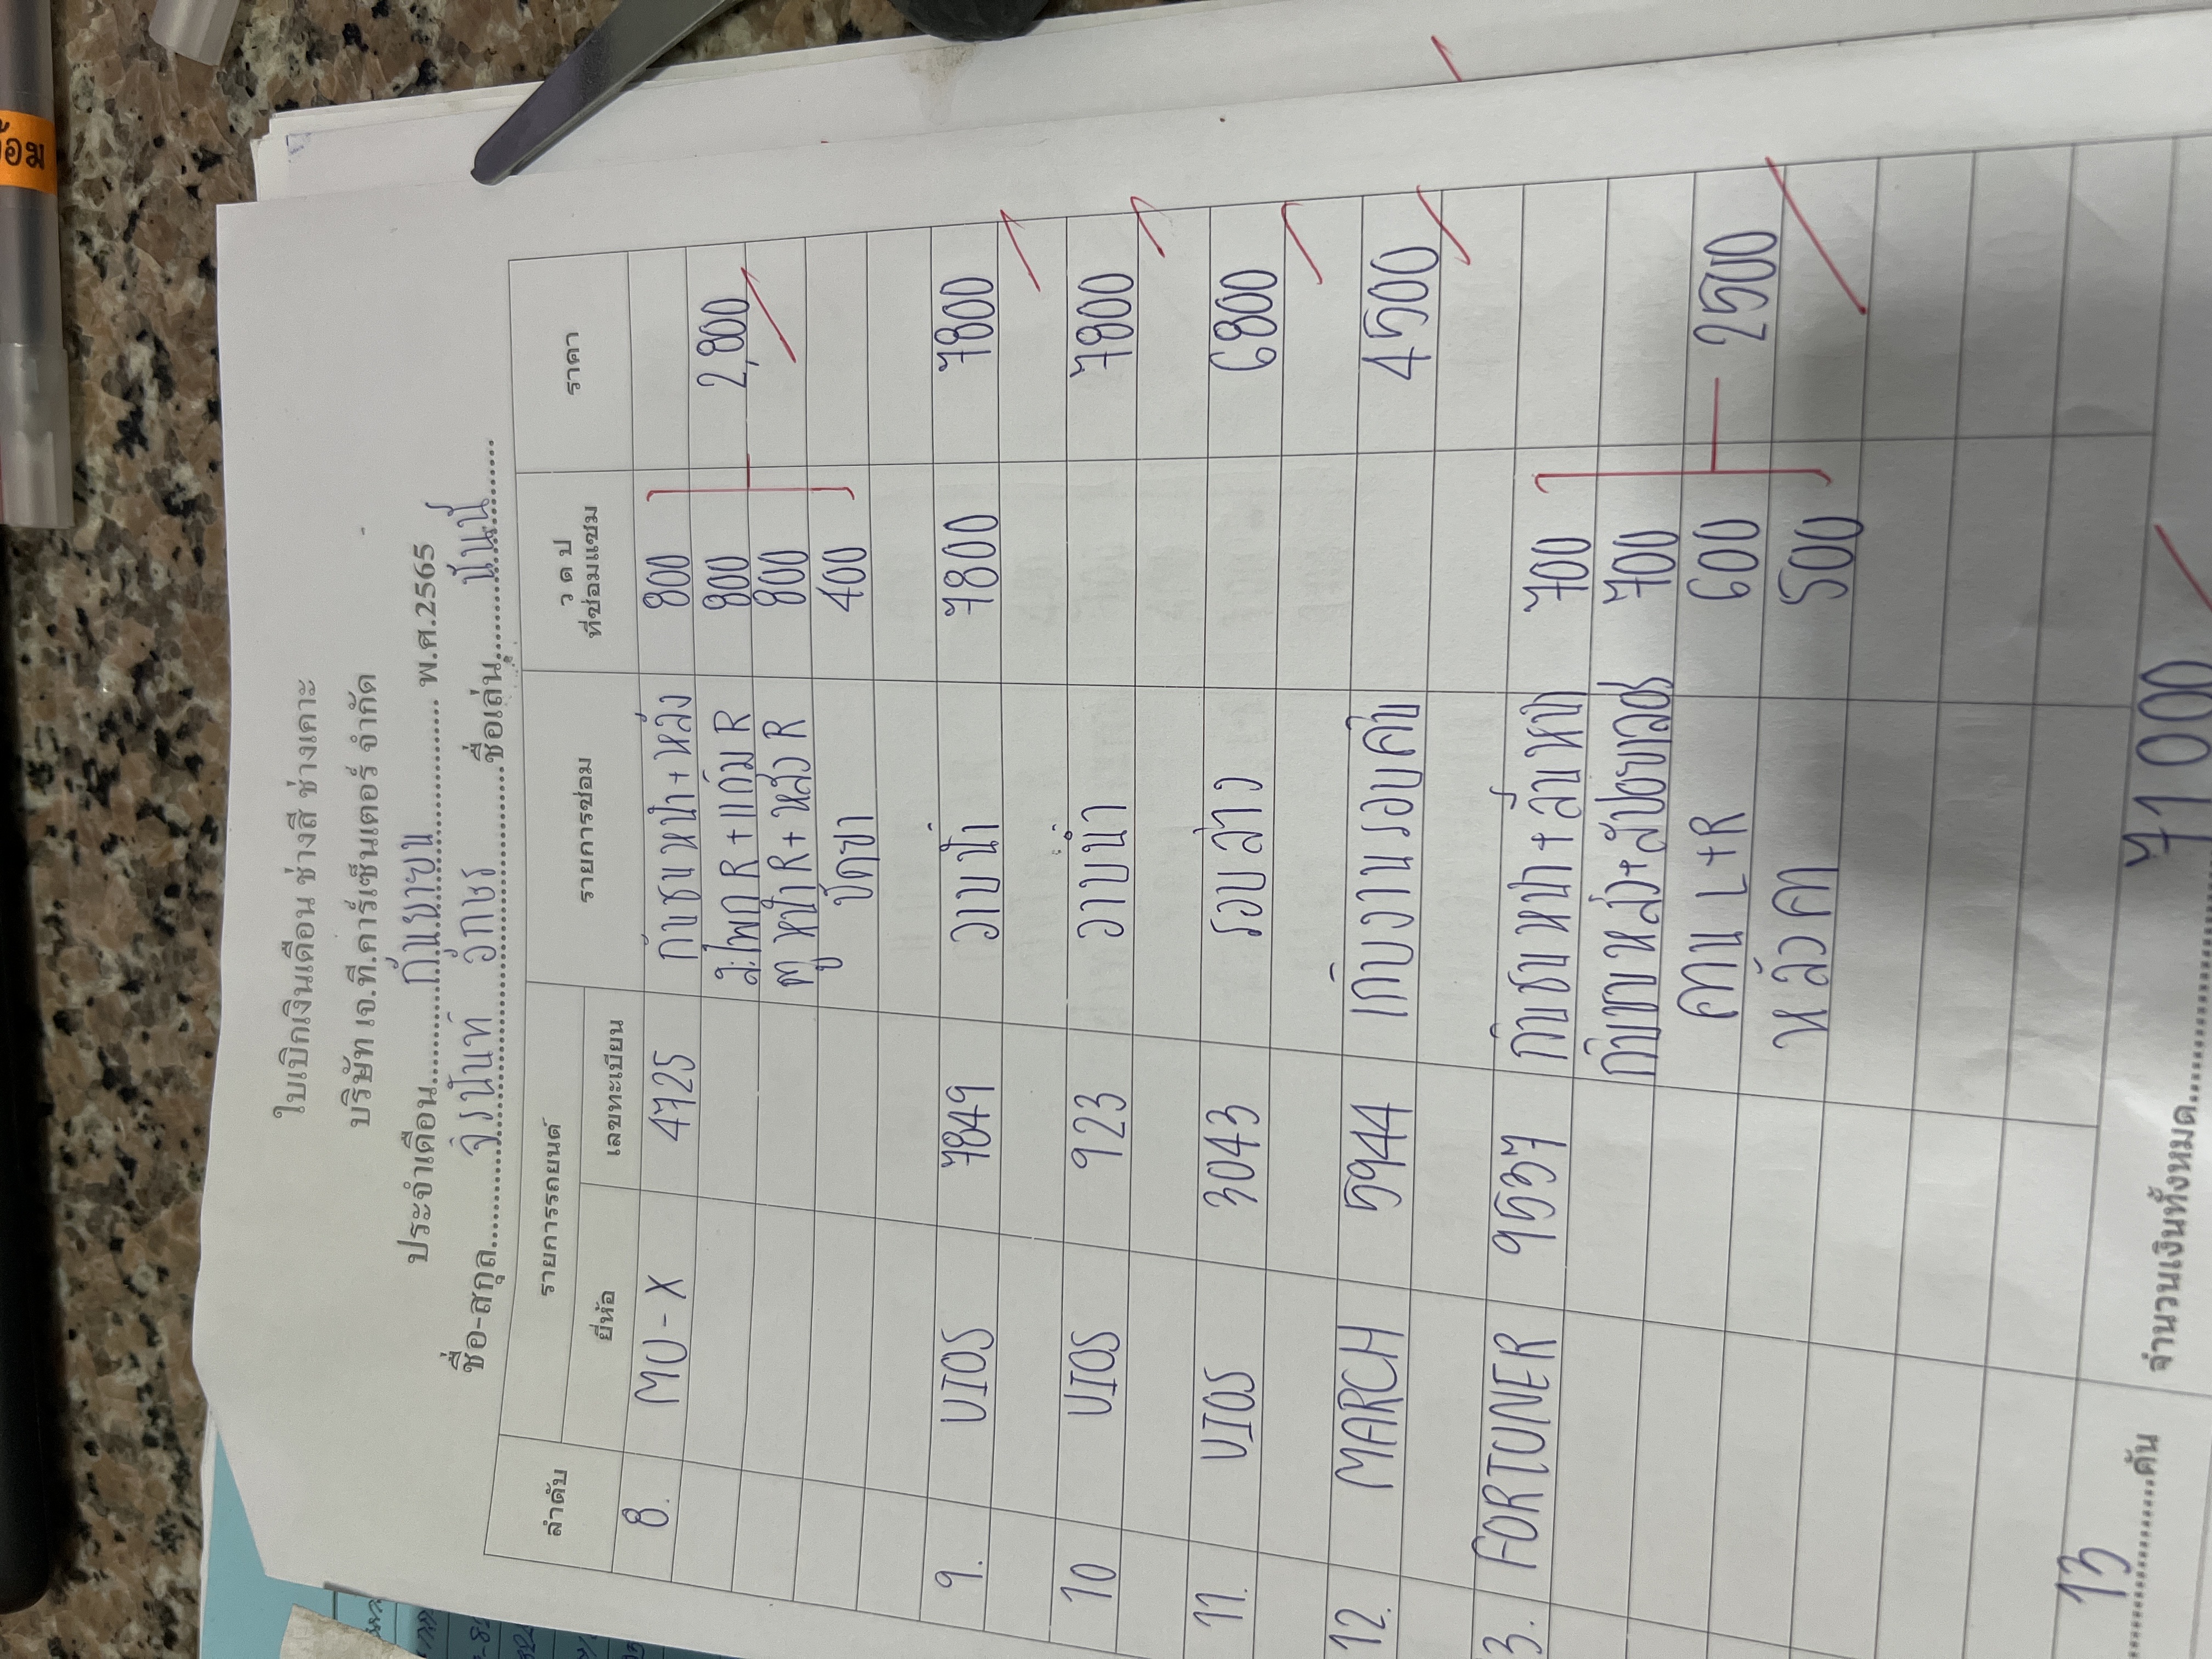 ใบเบิกเงินเดือน ช่างสี ช่างเคาะ
บริษัท เจ.ที.คาร์เซ็นเตอร์ จำกัด
ประจำเดือน..........กันยายน.......... พ.ศ.2565
ชื่อ-สกุล.......... จิรนันท์ อักษร ..........ชื่อเล่น.......... นันน์ ..........
ลำดับ รายการรถยนต์ รายการซ่อม ว ด ป ที่ซ่อมแซม ราคา
ยี่ห้อ เลขทะเบียน
8. MU-X 4725 กันชนหน้า+หลัง 800
สะโพก R+แก้ม R 800 2,800
ตู หน้า R+หลัง R 800
ขัดยา 400
9. VIOS 7849 อาบน้ำ 7800 7800
10 VIOS 923 อาบน้ำ 7800
11. VIOS 3043 รอบล่าง 6800
12. MARCH 5944 เก็บงานรอบคัน 4500
3. FORTUNER 9537 กันชนหน้า+ลิ้นหน้า 700
กันชนหลัง+สปอยเลอร์ 700
คาน L+R 600 2500
หลังคา 500
13 คัน จำนวนเงินทั้งหมด.......... 71000
ซ้อม